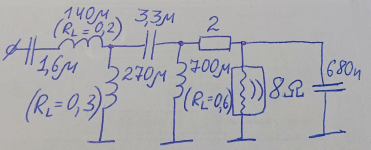 140м
(RL=0,2)
3,3м
2
1,6м
270м
(RL=0,3)
700м
(RL=0,6)
8Ω
680н